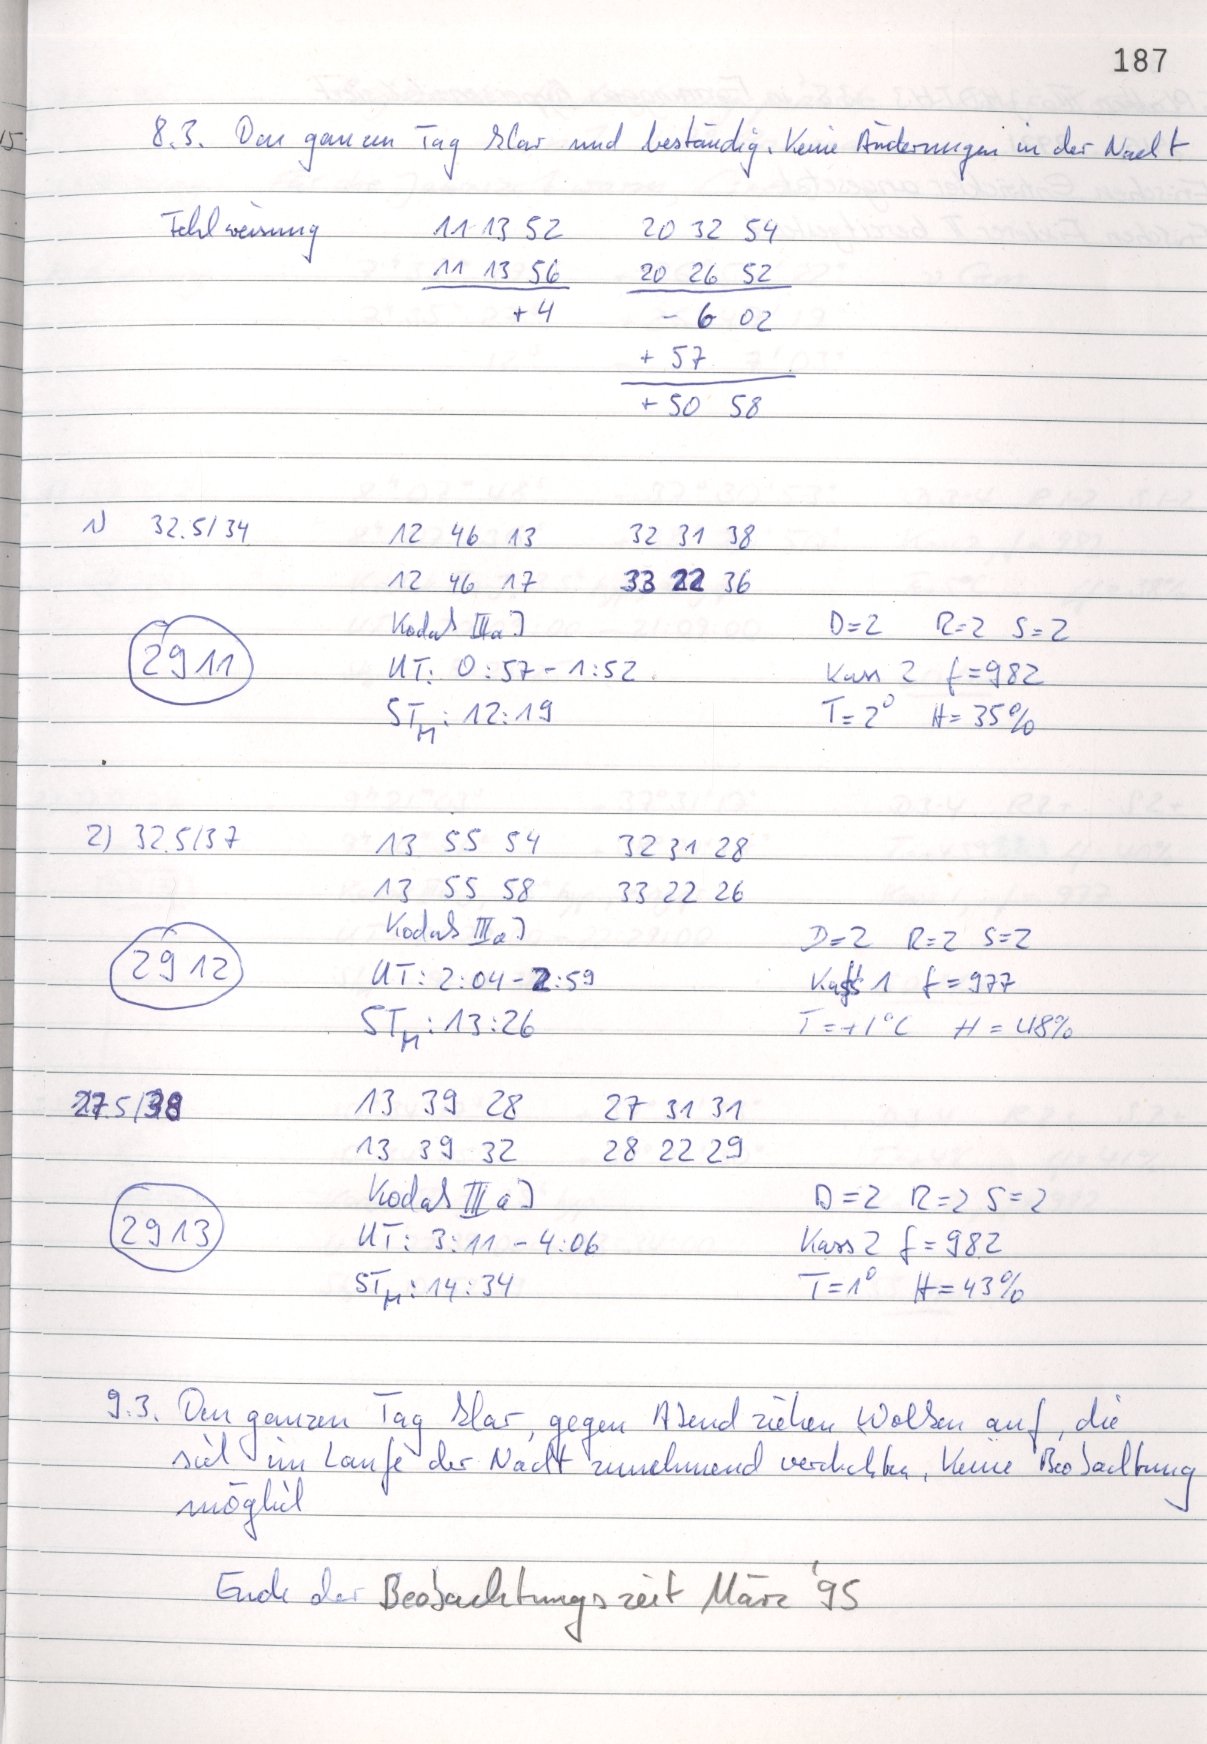 187
15
8.3. Den ganzen Tag klar und beständig. Keine Änderungen in der Nacht
Fehlweisung 11 13 52 20 32 54
11 13 56 20 26 52
+4 - 6 02
+ 57
+ 50 58
1) 32.5/34 12 46 13 32 31 38
12 46 17 33 22 36
Kodak IIIaJ D=2 R=2 S=2
2911 UT: 0:57-1:52 Kass 2 f=982
STM: 12:19 T=2° H=35%
2) 32.5/37 13 55 54 32 31 28
13 55 58 33 22 26
Kodak IIIaJ D=2 R=2 S=2
2912 UT: 2:04-2:59 Kass 1 f=977
STM: 13:26 T=+1°C H=48%
27.5/38 13 39 28 27 31 31
13 39 32 28 22 29
Kodak IIIaJ D=2 R=2 S=2
2913 UT: 3:11-4:06 Kass 2 f=982
STM: 14:34 T=1° H=43%
9.3. Den ganzen Tag klar, gegen Abend ziehen Wolken auf, die
sich im Laufe der Nacht zunehmend verdichten. Keine Beobachtung
möglich
Ende der Beobachtungszeit März '95